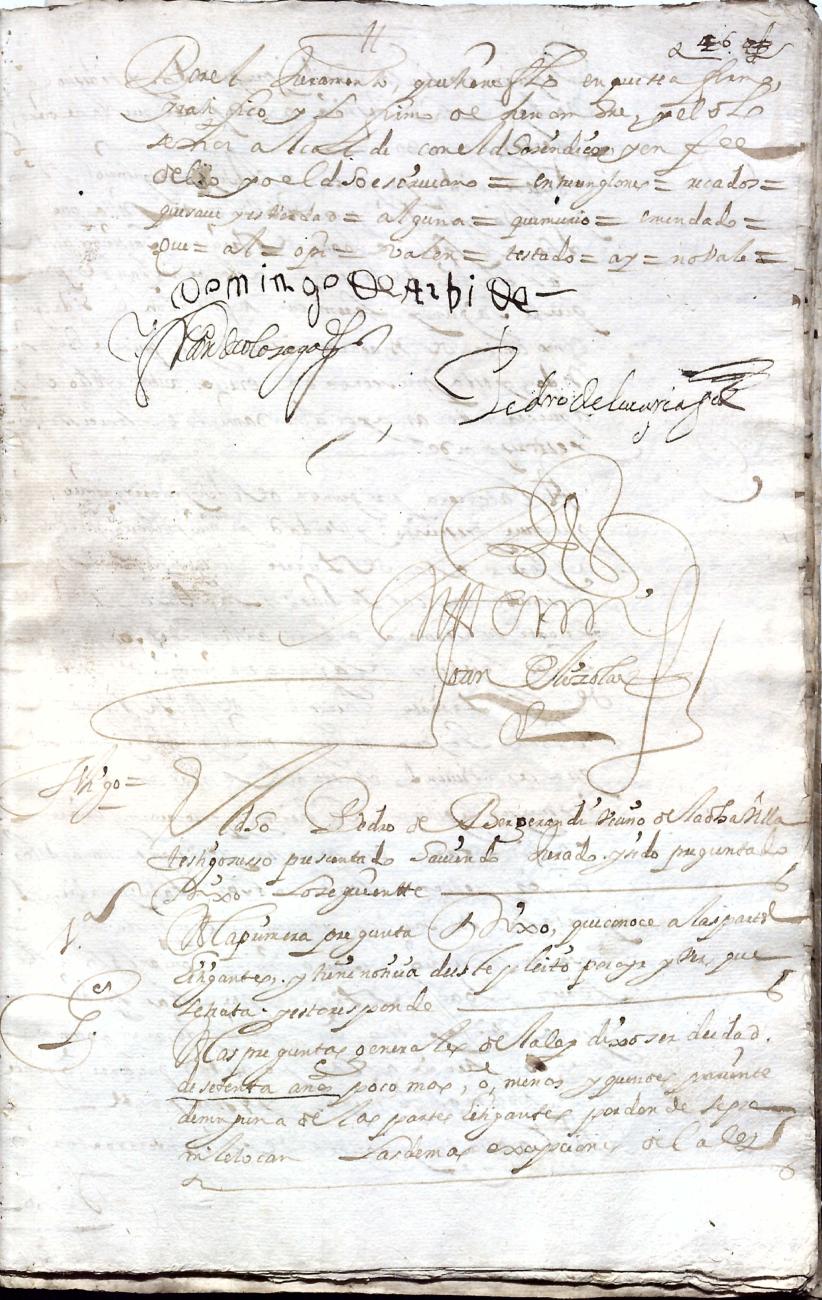 46
Por el Juramento, que tiene fho en que se a firmo,
Ratifico y lo firmo de su nombre, y el dho
señor alcalde con el dho sindico y en fee
dello yo el dho escriuano = entrerenglones = recados =
que saue y es verdad = alguna = = emendado =
que = al = ope = valen = testado = ay = no vale =
Domingo De Arbide

Pedro de
Ante mi
Joan
Thigo =
El dho Pedro de Bergerandi vezino de la dha Villa
testigo susso presentado hauiendo Jurado y sido preguntado
Dixo lo seguiente
1ª
A la primera pregunta Dixo, que conoce a las partes
litigantes, y tiene noticia deste pleito por oyr y ver, que
se trata y esto responde
Ges
A las preguntas generales de la ley dixo ser de idad
de setenta años poco mas, o, menos y que no es pariente
de ninguna de las partes litigantes por donde se pre
ni le tocan Las demas exepciones de la ley